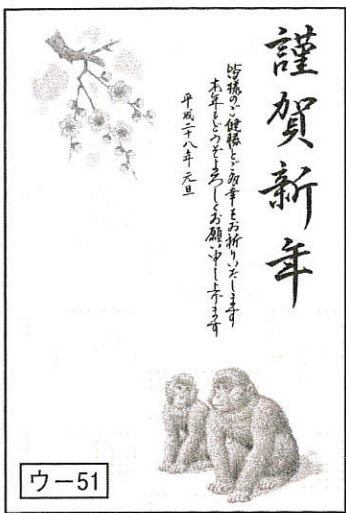 謹賀新年
皆様のご健勝とご多幸をお祈りいたします
本年もどうぞよろしくお願い申し上げます
平成二十八年 元旦
ウー51